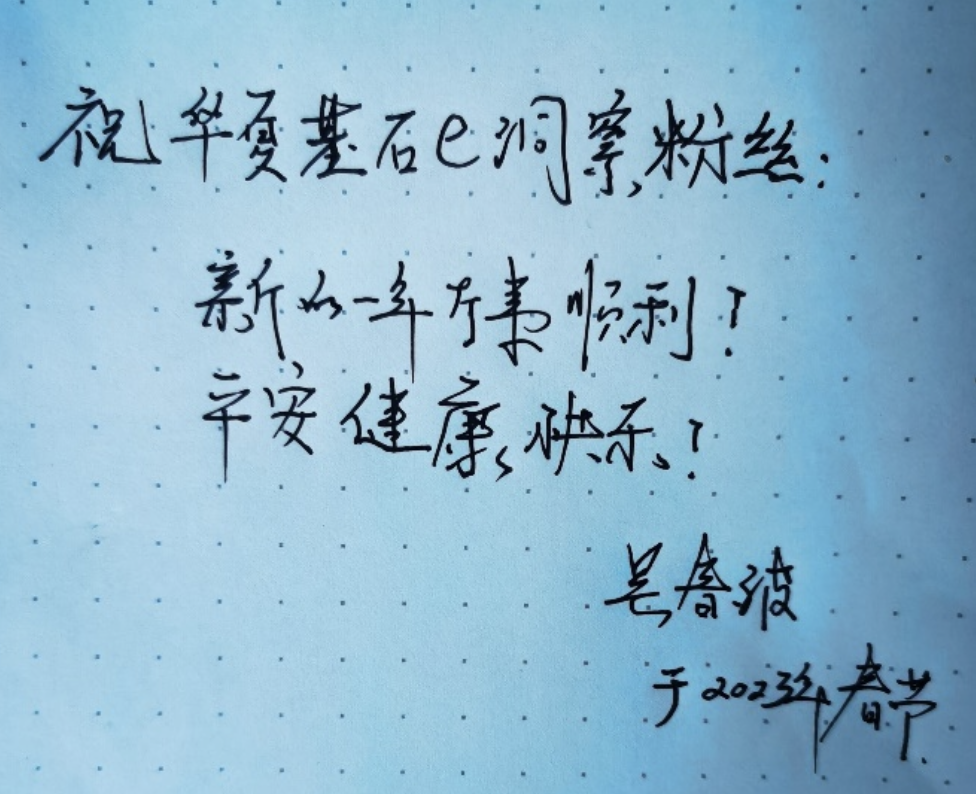 祝华夏基石e洞察粉丝：
新的一年万事顺利！
平安健康快乐！
吴春波
于2023年春节